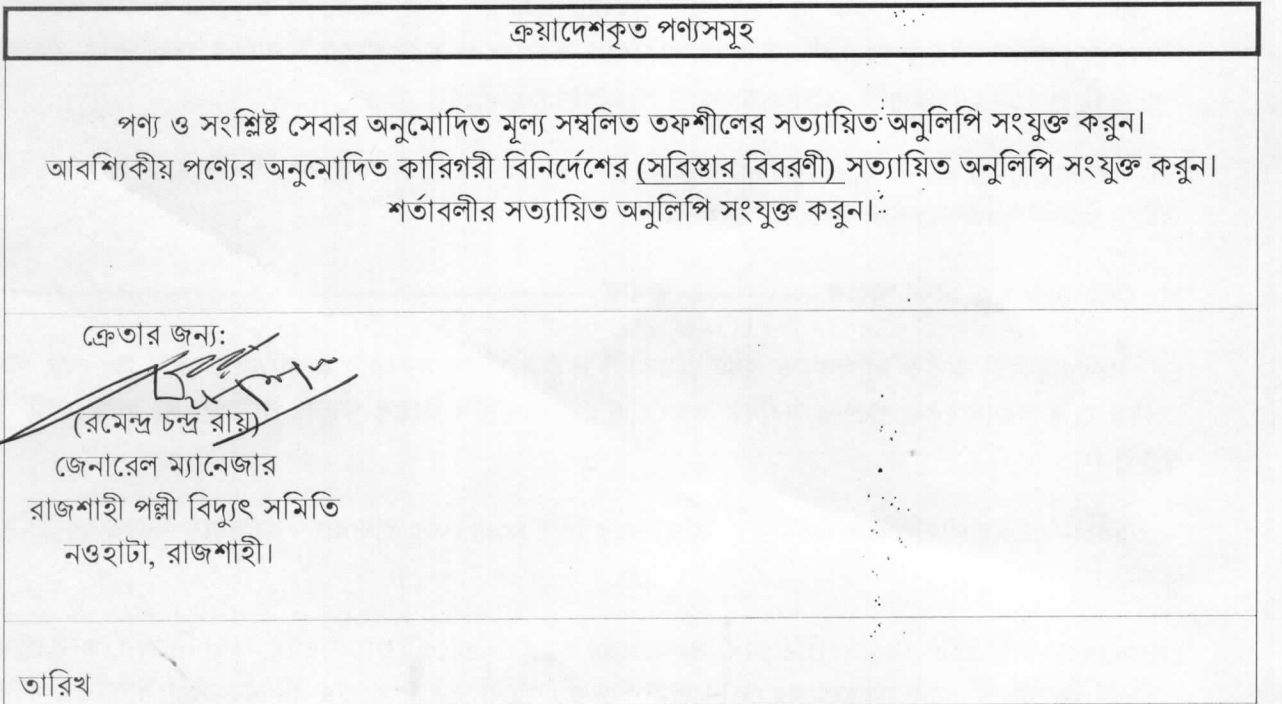 ক্রয়াদেশকৃত পণ্যসমূহ
পণ্য ও সংশ্লিষ্ট সেবার অনুমোদিত মূল্য সম্বলিত তফশীলের সত্যায়িত অনুলিপি সংযুক্ত করুন।
আবশ্যিকীয় পণ্যের অনুমোদিত কারিগরী বিনির্দেশের (সবিস্তার বিবরণী) সত্যায়িত অনুলিপি সংযুক্ত করুন।
শর্তাবলীর সত্যায়িত অনুলিপি সংযুক্ত করুন।
ক্রেতার জন্য:
(রমেন্দ্র চন্দ্র রায়)
জেনারেল ম্যানেজার
রাজশাহী পল্লী বিদ্যুৎ সমিতি
নওহাটা, রাজশাহী।
তারিখ